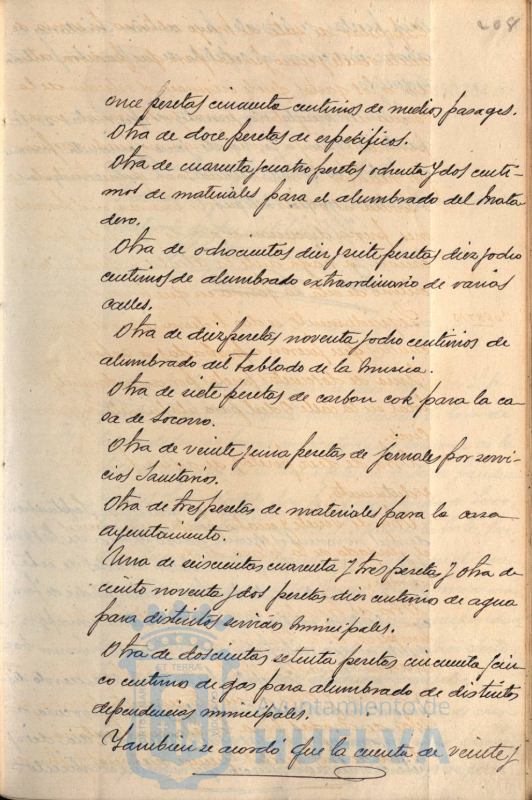 208
once pesetas cincuenta centimos de medios pasages.
Otra de doce pesetas de especificos.
Otra de cuarenta y cuatro pesetas ochenta y dos centi-
mos de materiales para el alumbrado del mata
dero.
Otra de ochocientas diez y siete pesetas diez y ocho
centimos de alumbrado extraordinario de varias
calles.
Otra de diez pesetas noventa y ocho centimos de
alumbrado del tablado de la musica.
Otra de siete pesetas de carbon cok para la ca
sa de Socorro.
Otra de veinte y una pesetas de jornales por servi-
cios Sanitarios.
Otra de tres pesetas de materiales para la casa
ayuntamiento.
Una de seiscientas cuarenta y tres pesetas y otra de
ciento noventa y dos pesetas diez centimos de agua
para distintos servicios municipales.
Otra de doscientas setenta pesetas cincuenta y cin-
co centimos de gas para alumbrado de distintas
dependencias municipales.
Tambien se acordó que la cuenta de veinte y
Ayuntamiento de
HUELVA